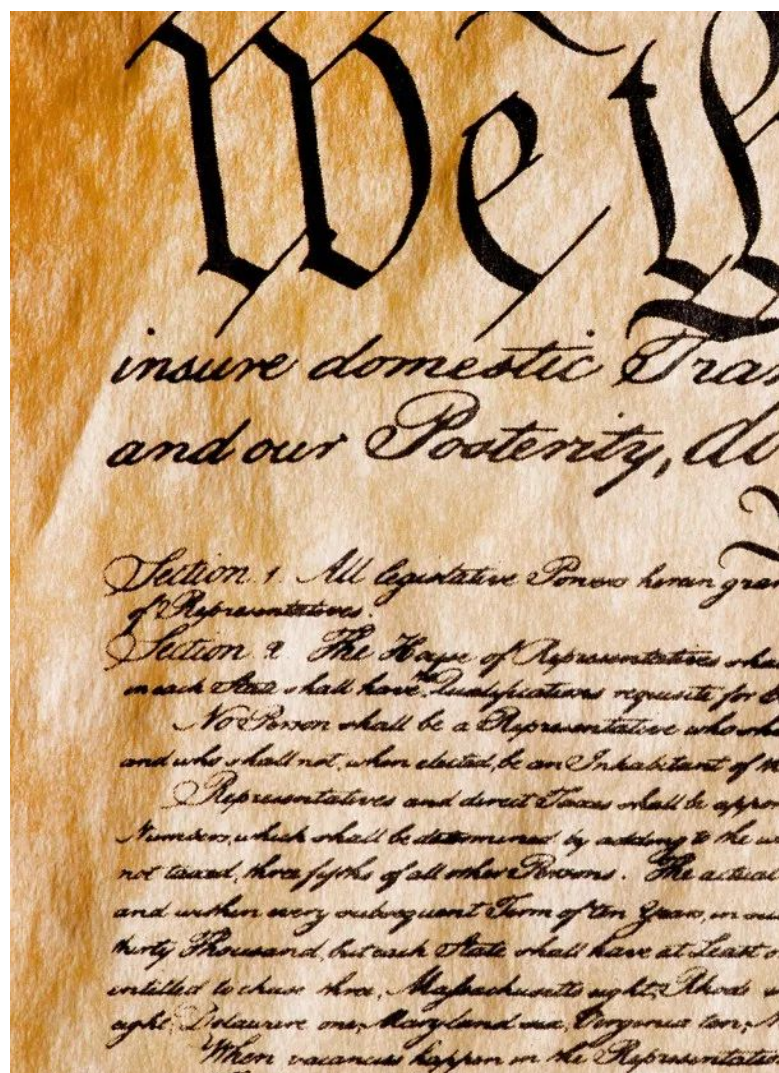 We th
insure domestic Tran
and our Posterity, do
Section. 1. All legislative Powers herein gran
of Representatives.
Section. 2. The House of Representatives shal
in each State shall have the Qualifications requisite for
No Person shall be a Representative who shal
and who shall not, when elected, be an Inhabitant of th
Representatives and direct Taxes shall be appor
Numbers, which shall be determined by adding to the
not taxed, three fifths of all other Persons. The actual
and within every subsequent Term of ten Years, in su
thirty Thousand, but each State shall have at Least
entitled to chuse three, Massachusetts eight, Rhode
eight, Delaware one, Maryland six, Virginia ten,
When vacancies happen in the Representation